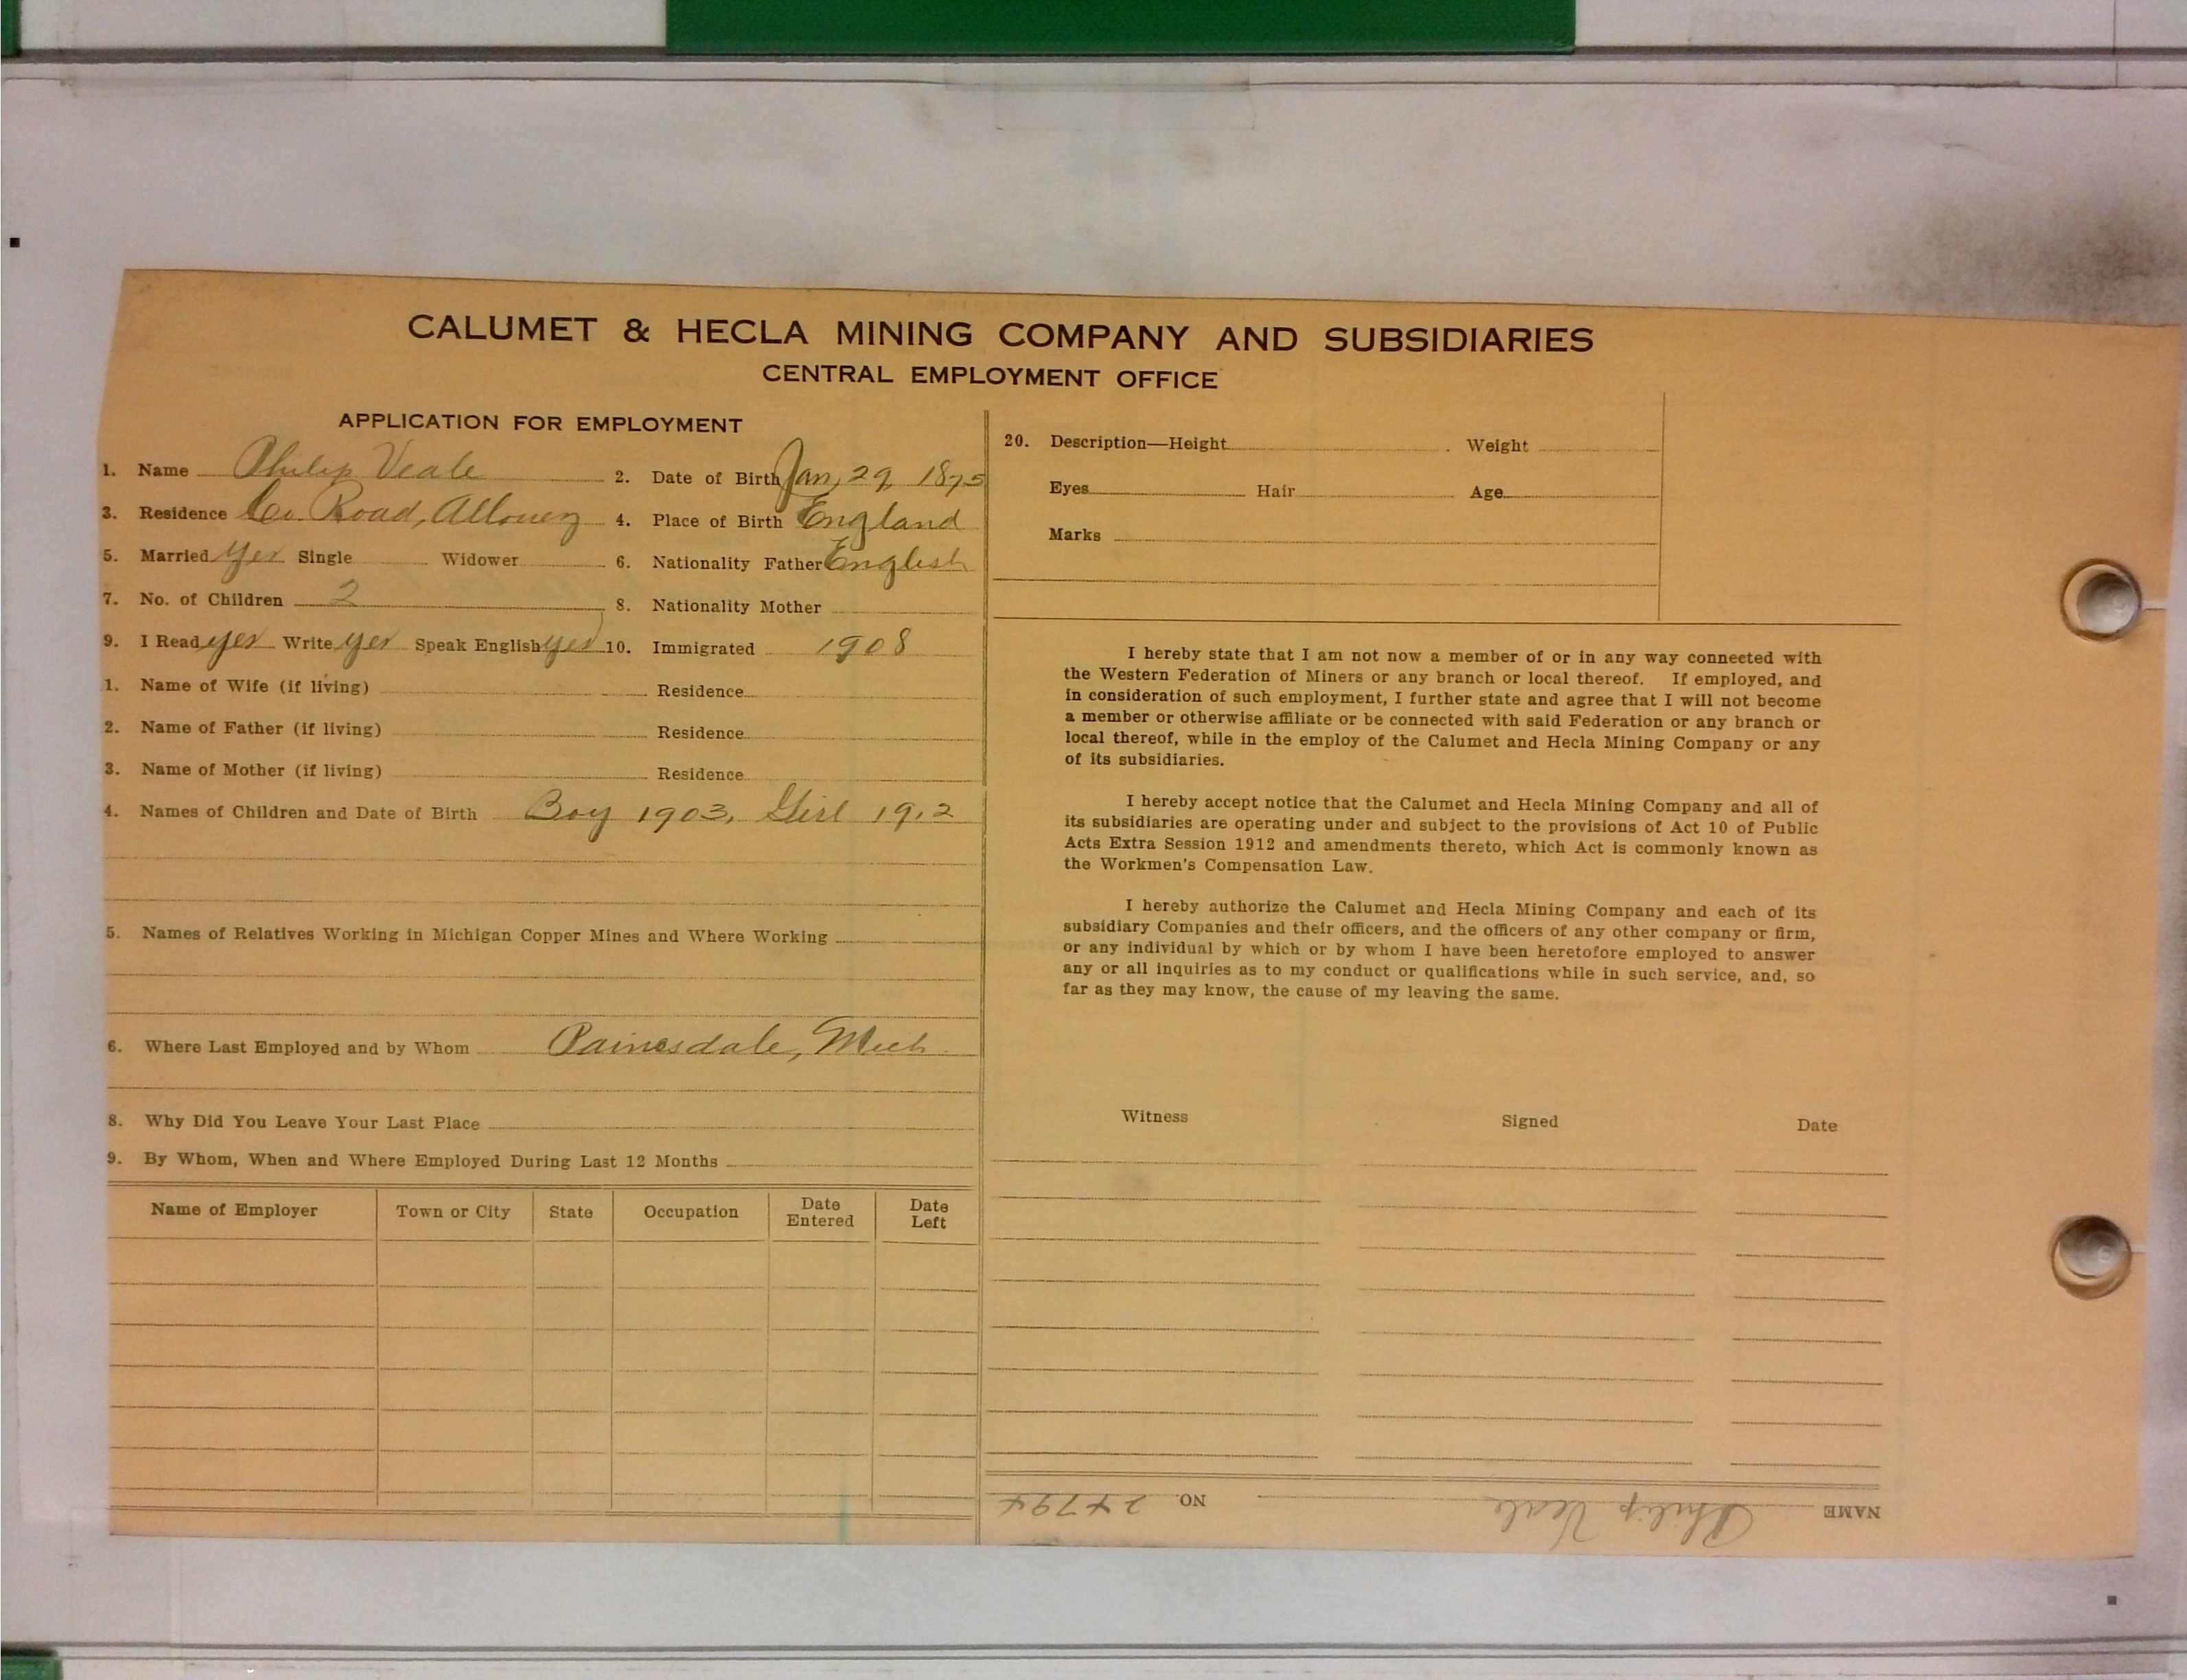 CALUMET & HECLA MINING COMPANY AND SUBSIDIARIES
CENTRAL EMPLOYMENT OFFICE
APPLICATION FOR EMPLOYMENT
1. Name Philip Veale 2. Date of Birth Jan, 29, 1875
3. Residence Co. Road, Allouez 4. Place of Birth England
5. Married Yes Single Widower 6. Nationality Father English
7. No. of Children 2 8. Nationality Mother
9. I Read yes Write yes Speak English yes 10. Immigrated 1908
1. Name of Wife (if living) Residence
2. Name of Father (if living) Residence
3. Name of Mother (if living) Residence
4. Names of Children and Date of Birth Boy 1903, Girl 1912
5. Names of Relatives Working in Michigan Copper Mines and Where Working
6. Where Last Employed and by Whom Painesdale, Mich
8. Why Did You Leave Your Last Place
9. By Whom, When and Where Employed During Last 12 Months
Name of Employer Town or City State Occupation Date Entered Date Left
20. Description—Height Weight
Eyes Hair Age
Marks
I hereby state that I am not now a member of or in any way connected with
the Western Federation of Miners or any branch or local thereof. If employed, and
in consideration of such employment, I further state and agree that I will not become
a member or otherwise affiliate or be connected with said Federation or any branch or
local thereof, while in the employ of the Calumet and Hecla Mining Company or any
of its subsidiaries.
I hereby accept notice that the Calumet and Hecla Mining Company and all of
its subsidiaries are operating under and subject to the provisions of Act 10 of Public
Acts Extra Session 1912 and amendments thereto, which Act is commonly known as
the Workmen's Compensation Law.
I hereby authorize the Calumet and Hecla Mining Company and each of its
subsidiary Companies and their officers, and the officers of any other company or firm,
or any individual by which or by whom I have been heretofore employed to answer
any or all inquiries as to my conduct or qualifications while in such service, and, so
far as they may know, the cause of my leaving the same.
Witness Signed Date
NAME Philip Veale NO. 24794